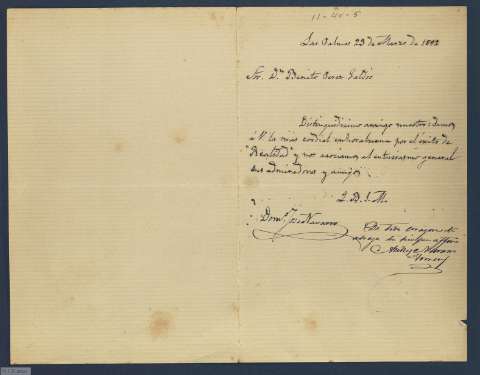 11-20-5
Las Palmas 23 de Marzo de 1892
Sor. Dn. Benito Perez Galdós
Distinguidísimo amigo nuestro: damos
á V. la más cordial enhorabuena por el éxito de
"Realidad" y nos asociamos al entusiasmo general
sus admiradores y amigos
Q. B. S. M.
Domo. José Navarro
De todo corazon le